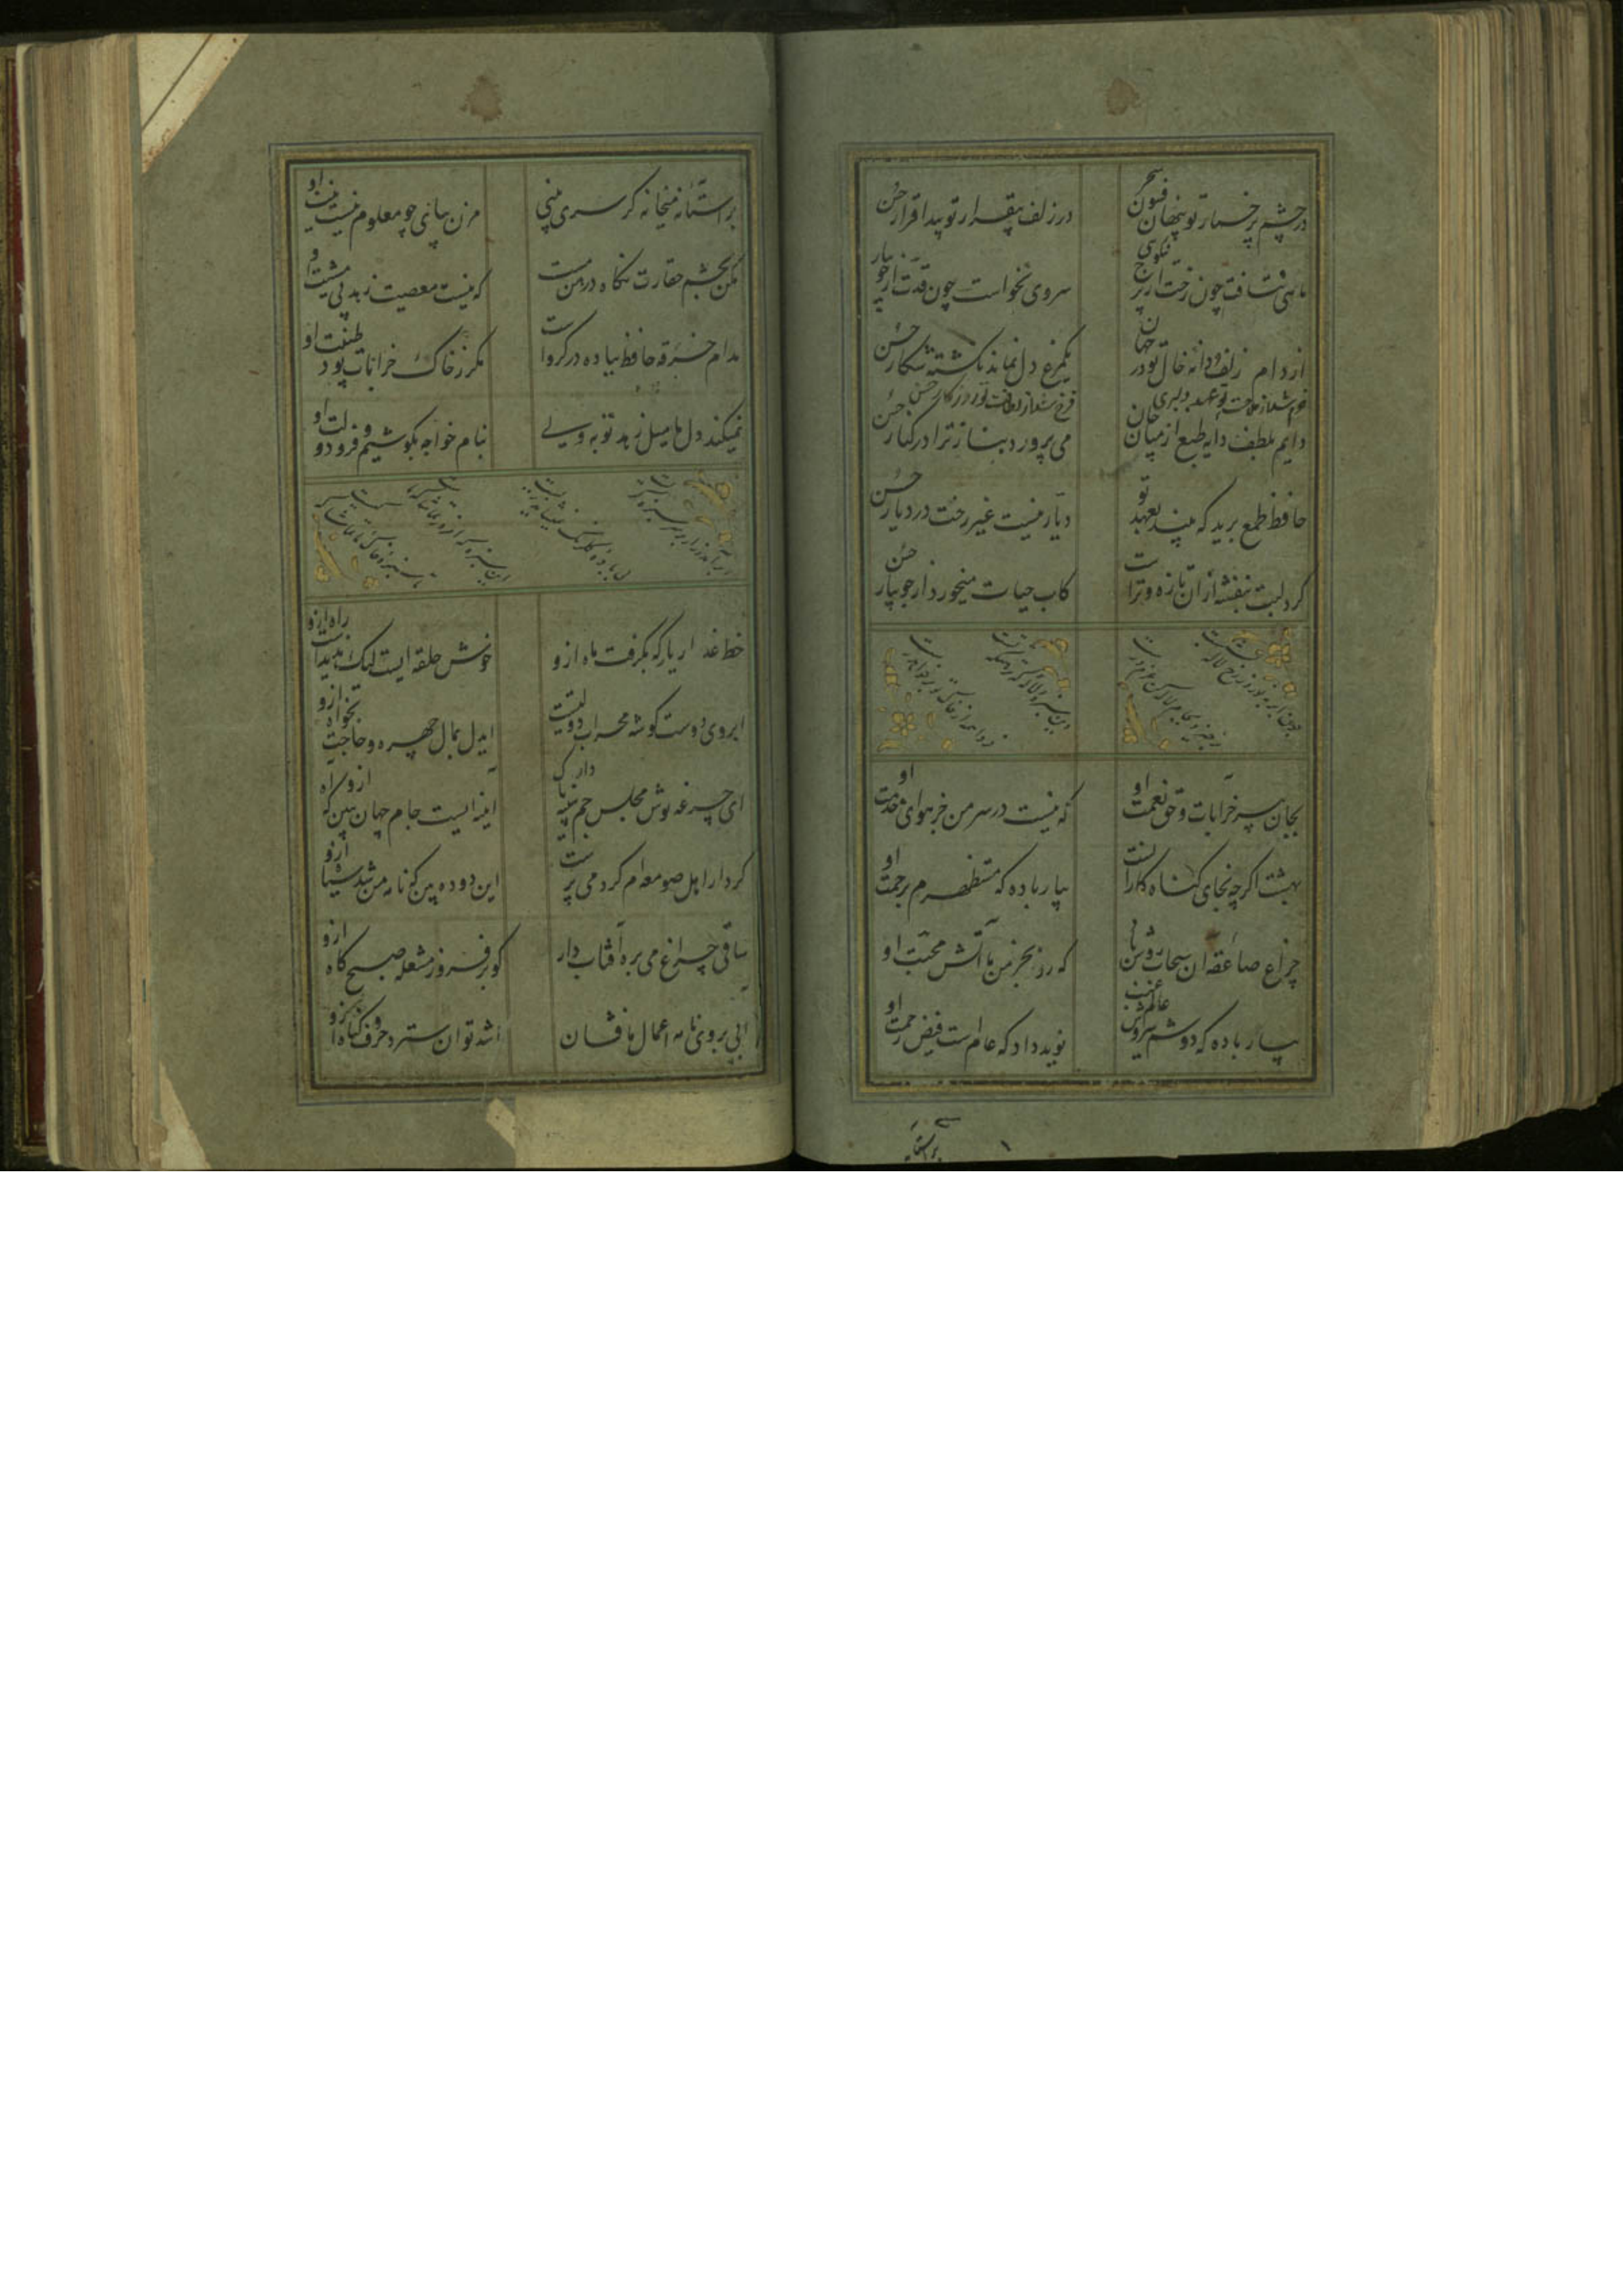 در چشم پرخمار تو پنهان فسون سحر
در زلف بیقرار تو پیدا قرار حسن
ماهی نتافت چون رخت از برج نیکوی
سروی نخواست چون قدت از جویبار
از دام زلف و دانه خال تو در جهان
یکمرغ دل نماند نکشته شکار حسن
خرم شد از ملاحت تو عهد دلبری
فرخ شد از لطافت تو روزکار حسن
دایم بلطف دایه طبع از میان جان
می پرورد بناز ترا در کنار حسن
حافظ طمع برید که بیند بعهد تو
دیار نیست غیر رخت در دیار حسن
کرد لبت بنفشه از ان تازه و تراست
کاب حیات میخورد از جویبار حسن
بجان پیر خرابات و حق نعمت او
که نیست در سر من جز هوای خدمت او
بهشت اکرچه نجای کناه کارانست
بیار باده که مستظهرم برحمت او
چراغ صاعقه ان سحاب روشن باد
که زد بخرمن ما آتش محبت او
بیار باده که دوشم سروش عالم غیب
نوید داد که عام است فیض رحمت او
بر استانه
بر آستانه میخانه کر سری بینی
مزن بپای چو معلوم نیست نیت او
مکن بچشم حقارت نکاه در من مست
که نیست معصیت و زهد بی مشیت او
مدام خرقه حافظ بباده در کرو است
مکر ز خاک خرابات بود طینت او
نمیکند دل ما میل زهد و توبه ولی
بنام خواجه بکوشیم و فر دولت او
ابر آمد و زار بر سر سبزه کریست
بی باده کلرنک نمیشاید زیست
این سبزه که امروز تماشاکه ماست
تا سبزه خاک ما تماشاکه کیست
خط عذار یار که بکرفت ماه ازو
خوش حلقه ایست لیک بدر نیست راه ازو
ابروی دوست کوشه محراب دولتست
ایدل بمال چهره و حاجت بخواه ازو
ای جرعه نوش مجلس جم سینه پاک دار
اینه ایست جام جهان بین که اه ازو
کردار اهل صومعه ام کرد می پرست
این دوده بین که نامه من شد سیاه ازو
ساقی چراغ می بره آفتاب دار
کو برفروز مشعله صبحکاه ازو
ابی بروی نامه اعمال ما فشان
باشد توان سترد حروف کناه ازو